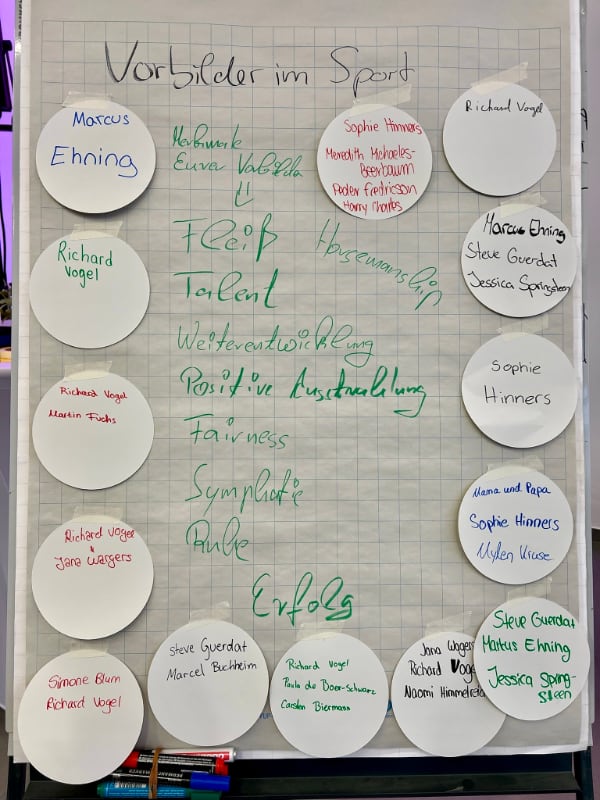 Vorbilder im Sport
Marcus
Ehning
Richard
Vogel
Richard Vogel
Martin Fuchs
Richard Vogel
&
Jana Wargers
Simone Blum
Richard Vogel
Merkmale
Eurer Vorbilder
Fleiß
Horsemanship
Talent
Weiterentwicklung
Positive Ausstrahlung
Fairness
Symphatie
Ruhe
Erfolg
Sophie Hinners
Meredith Michaeles-
Beerbaum
Peder Fredricson
Harry Charles
Richard Vogel
Marcus Ehning
Steve Guerdat
Jessica Springsteen
Sophie
Hinners
Mama und Papa
Sophie Hinners
Mylen Kruse
Steve Guerdat
Markus Ehning
Jessica Spring-
steen
Steve Guerdat
Marcel Buchheim
Richard Vogel
Paula de Boer-Schwarz
Carsten Biermann
Jana Wagers
Richard Vogel
Naomi